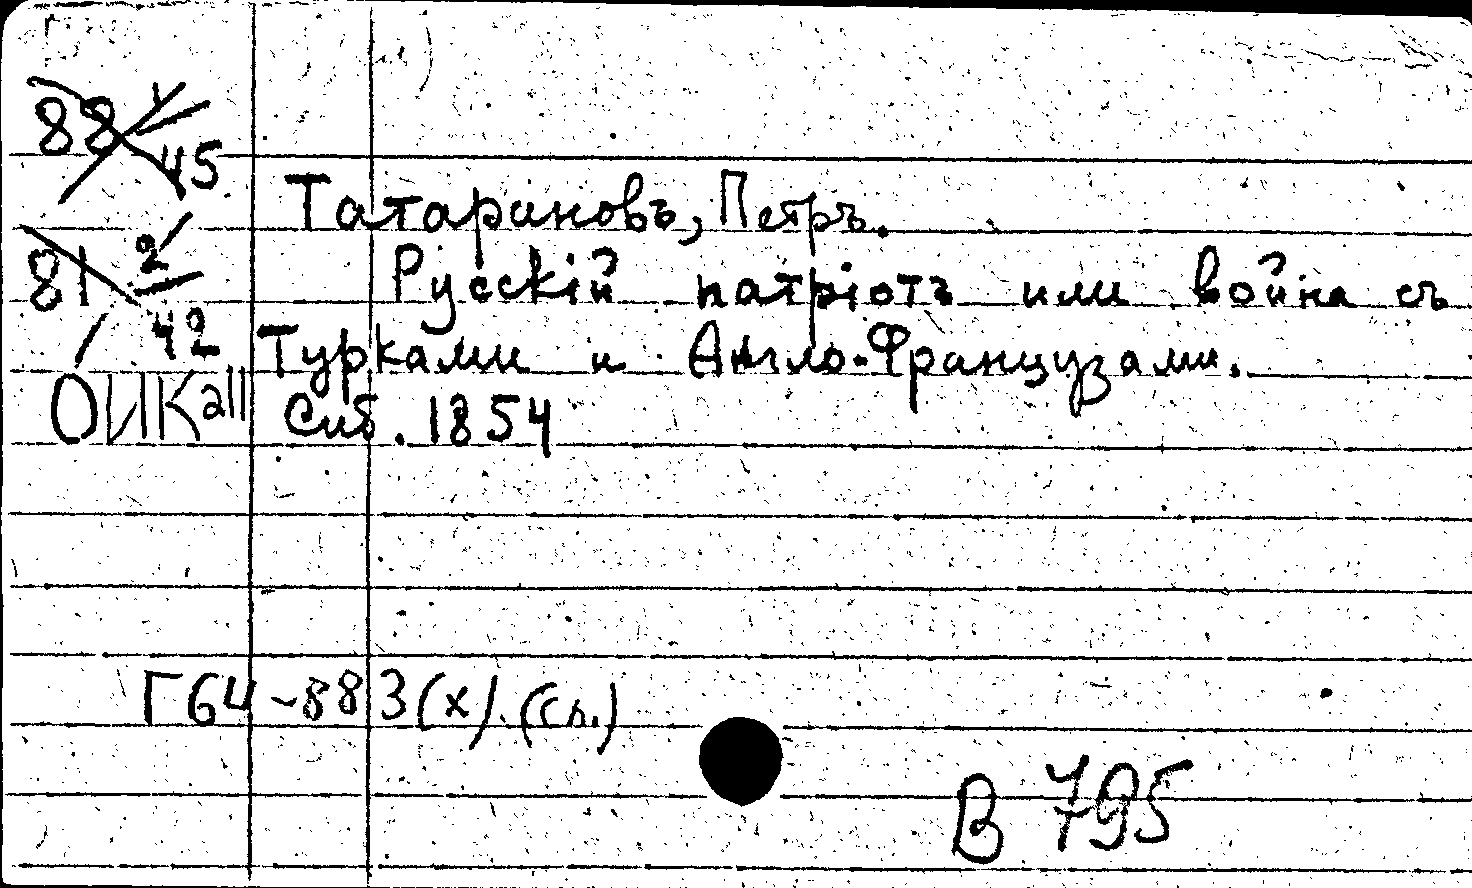 88 1/45
Татариновъ, Петръ.
81 2/42
Русскій патріотъ или война съ
Турками и Англо-Французами.
ОИК all
Спб. 1854
Г64-883(х).(Сл.)
В 795